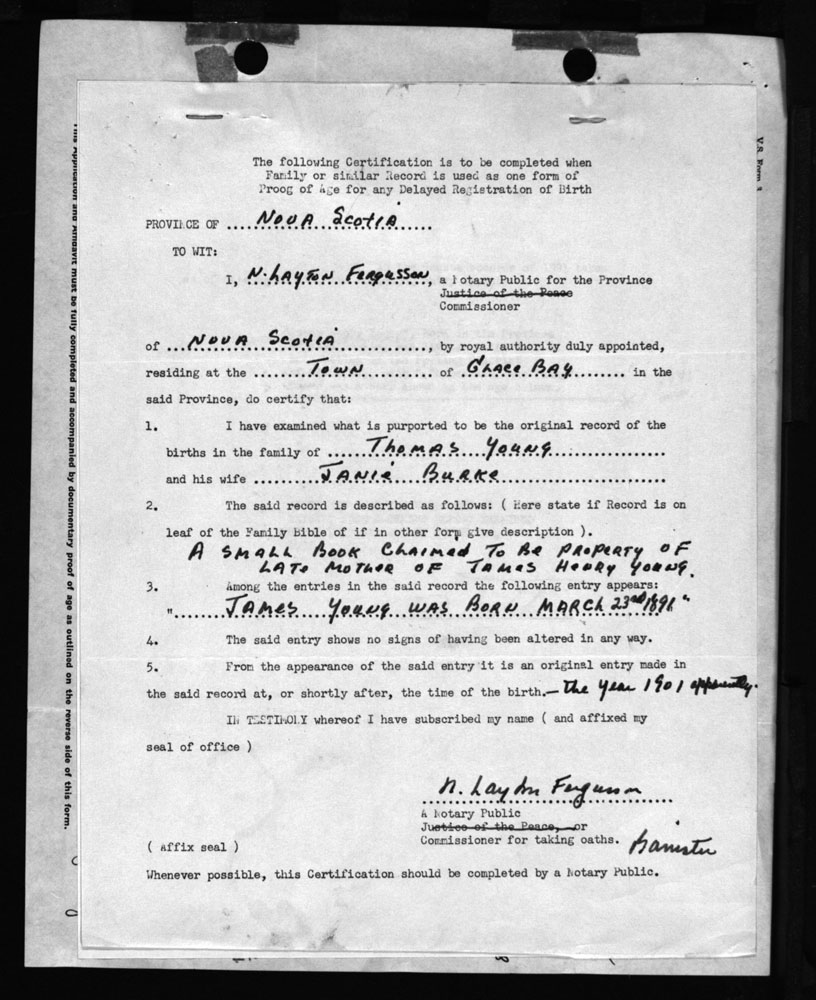 The following Certification is to be completed when
Family or similar Record is used as one form of
Proog of Age for any Delayed Registration of Birth
PROVINCE OF ....NOVA SCOTIA.....
TO WIT:
I, N. LAYTON FERGUSSON, a Notary Public for the Province
Justice of the Peace
Commissioner
of ...NOVA SCOTIA..............., by royal authority duly appointed,
residing at the ........TOWN.......... of GLACE BAY........ in the
said Province, do certify that:
1. I have examined what is purported to be the original record of the
births in the family of ......THOMAS YOUNG...............
and his wife ..........JANIE BURKE........................
2. The said record is described as follows: ( Here state if Record is on
leaf of the Family Bible of if in other form give description ).
A SMALL BOOK CLAIMED TO BE PROPERTY OF
LATE MOTHER OF JAMES HENRY YOUNG.
3. Among the entries in the said record the following entry appears:
"........JAMES YOUNG WAS BORN MARCH 23rd 1896"
4. The said entry shows no signs of having been altered in any way.
5. From the appearance of the said entry it is an original entry made in
the said record at, or shortly after, the time of the birth.— the year 1901 apparently.
IN TESTIMONY whereof I have subscribed my name ( and affixed my
seal of office )
N. Layton Fergusson
A Notary Public
Justice of the Peace, or
Commissioner for taking oaths. Barrister
( Affix seal )
Whenever possible, this Certification should be completed by a Notary Public.
This Application and Affidavit must be fully completed and accompanied by documentary proof of age as outlined on the reverse side of this form.
V.S. Form 3